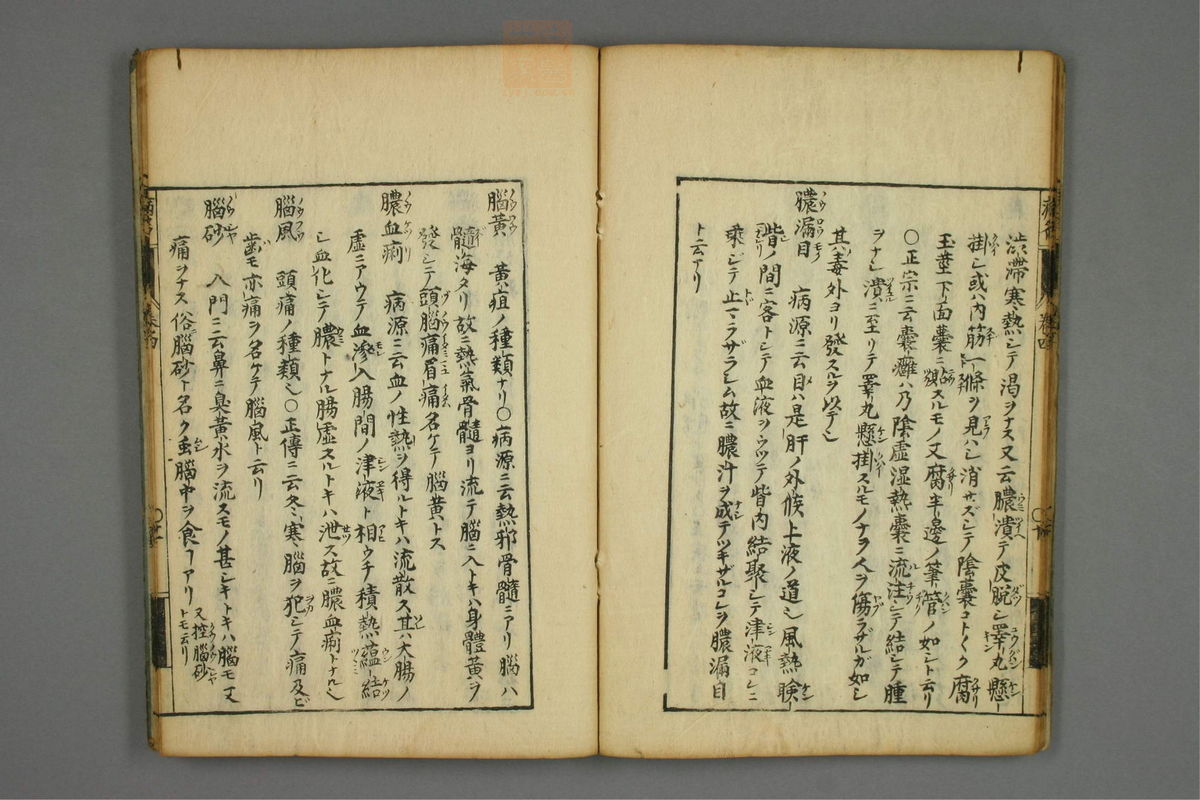 渋滞寒熱シテ渇ヲナス又云膿潰テ皮脱シ睪丸懸
掛シ或ハ内筋一條ヲ見ハシ消サズシテ陰嚢コト〳〵ク腐
玉莖下面嚢ニスルモノ又腐半邊ノ筆管ノ如シト云リ
〇正宗ニ云嚢癰ハ乃陰虚湿熱嚢ニ流注シテ結シテ腫
ヲナシ潰ニ至リテ睪丸懸掛スルモノナヲ人ヲ傷ラザルガ如シ
其毒外ヨリ發スルヲ以テ也
膿漏目 病源ニ云目ハ是肝ノ外候上液ノ道也風熱瞼
眥ノ間ニ客トシテ血液ヲウツテ眥内結聚シテ津液コレニ
乘ジテ止マラザラシム故ニ膿汁ヲ成テツキザルコレヲ膿漏目
ト云ナリ
腦黄 黄疸ノ種類ナリ〇病源ニ云熱邪骨髓ニアリ腦ハ
髓海タリ故ニ熱氣骨髓ヨリ流テ腦ニ入トキハ身體黄ヲ
發シテ頭腦痛眉痛名ケテ腦黄トス
膿血痢 病源ニ云血ノ性熱ヲ得ルトキハ流散ス其大腸ノ
虚ニアウテ血滲入腸間ノ津液ト相ウチ積熱蘊結
シ血化シテ膿トナル腸虚スルトキハ泄ス故ニ膿血痢トナル也
腦風 頭痛ノ種類也〇正傳ニ云冬寒腦ヲ犯シテ痛及ビ
歯モ亦痛ヲ名ケテ腦風ト云リ
腦砂 入門ニ云鼻ニ臭黄水ヲ流スモノ甚シキトキハ腦モ又
痛ヲナス俗腦砂ト名ク虫腦中ヲ食フアリ 又控腦砂トモ云リ